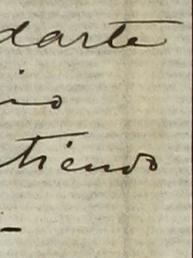 darte
io
tiendo
-